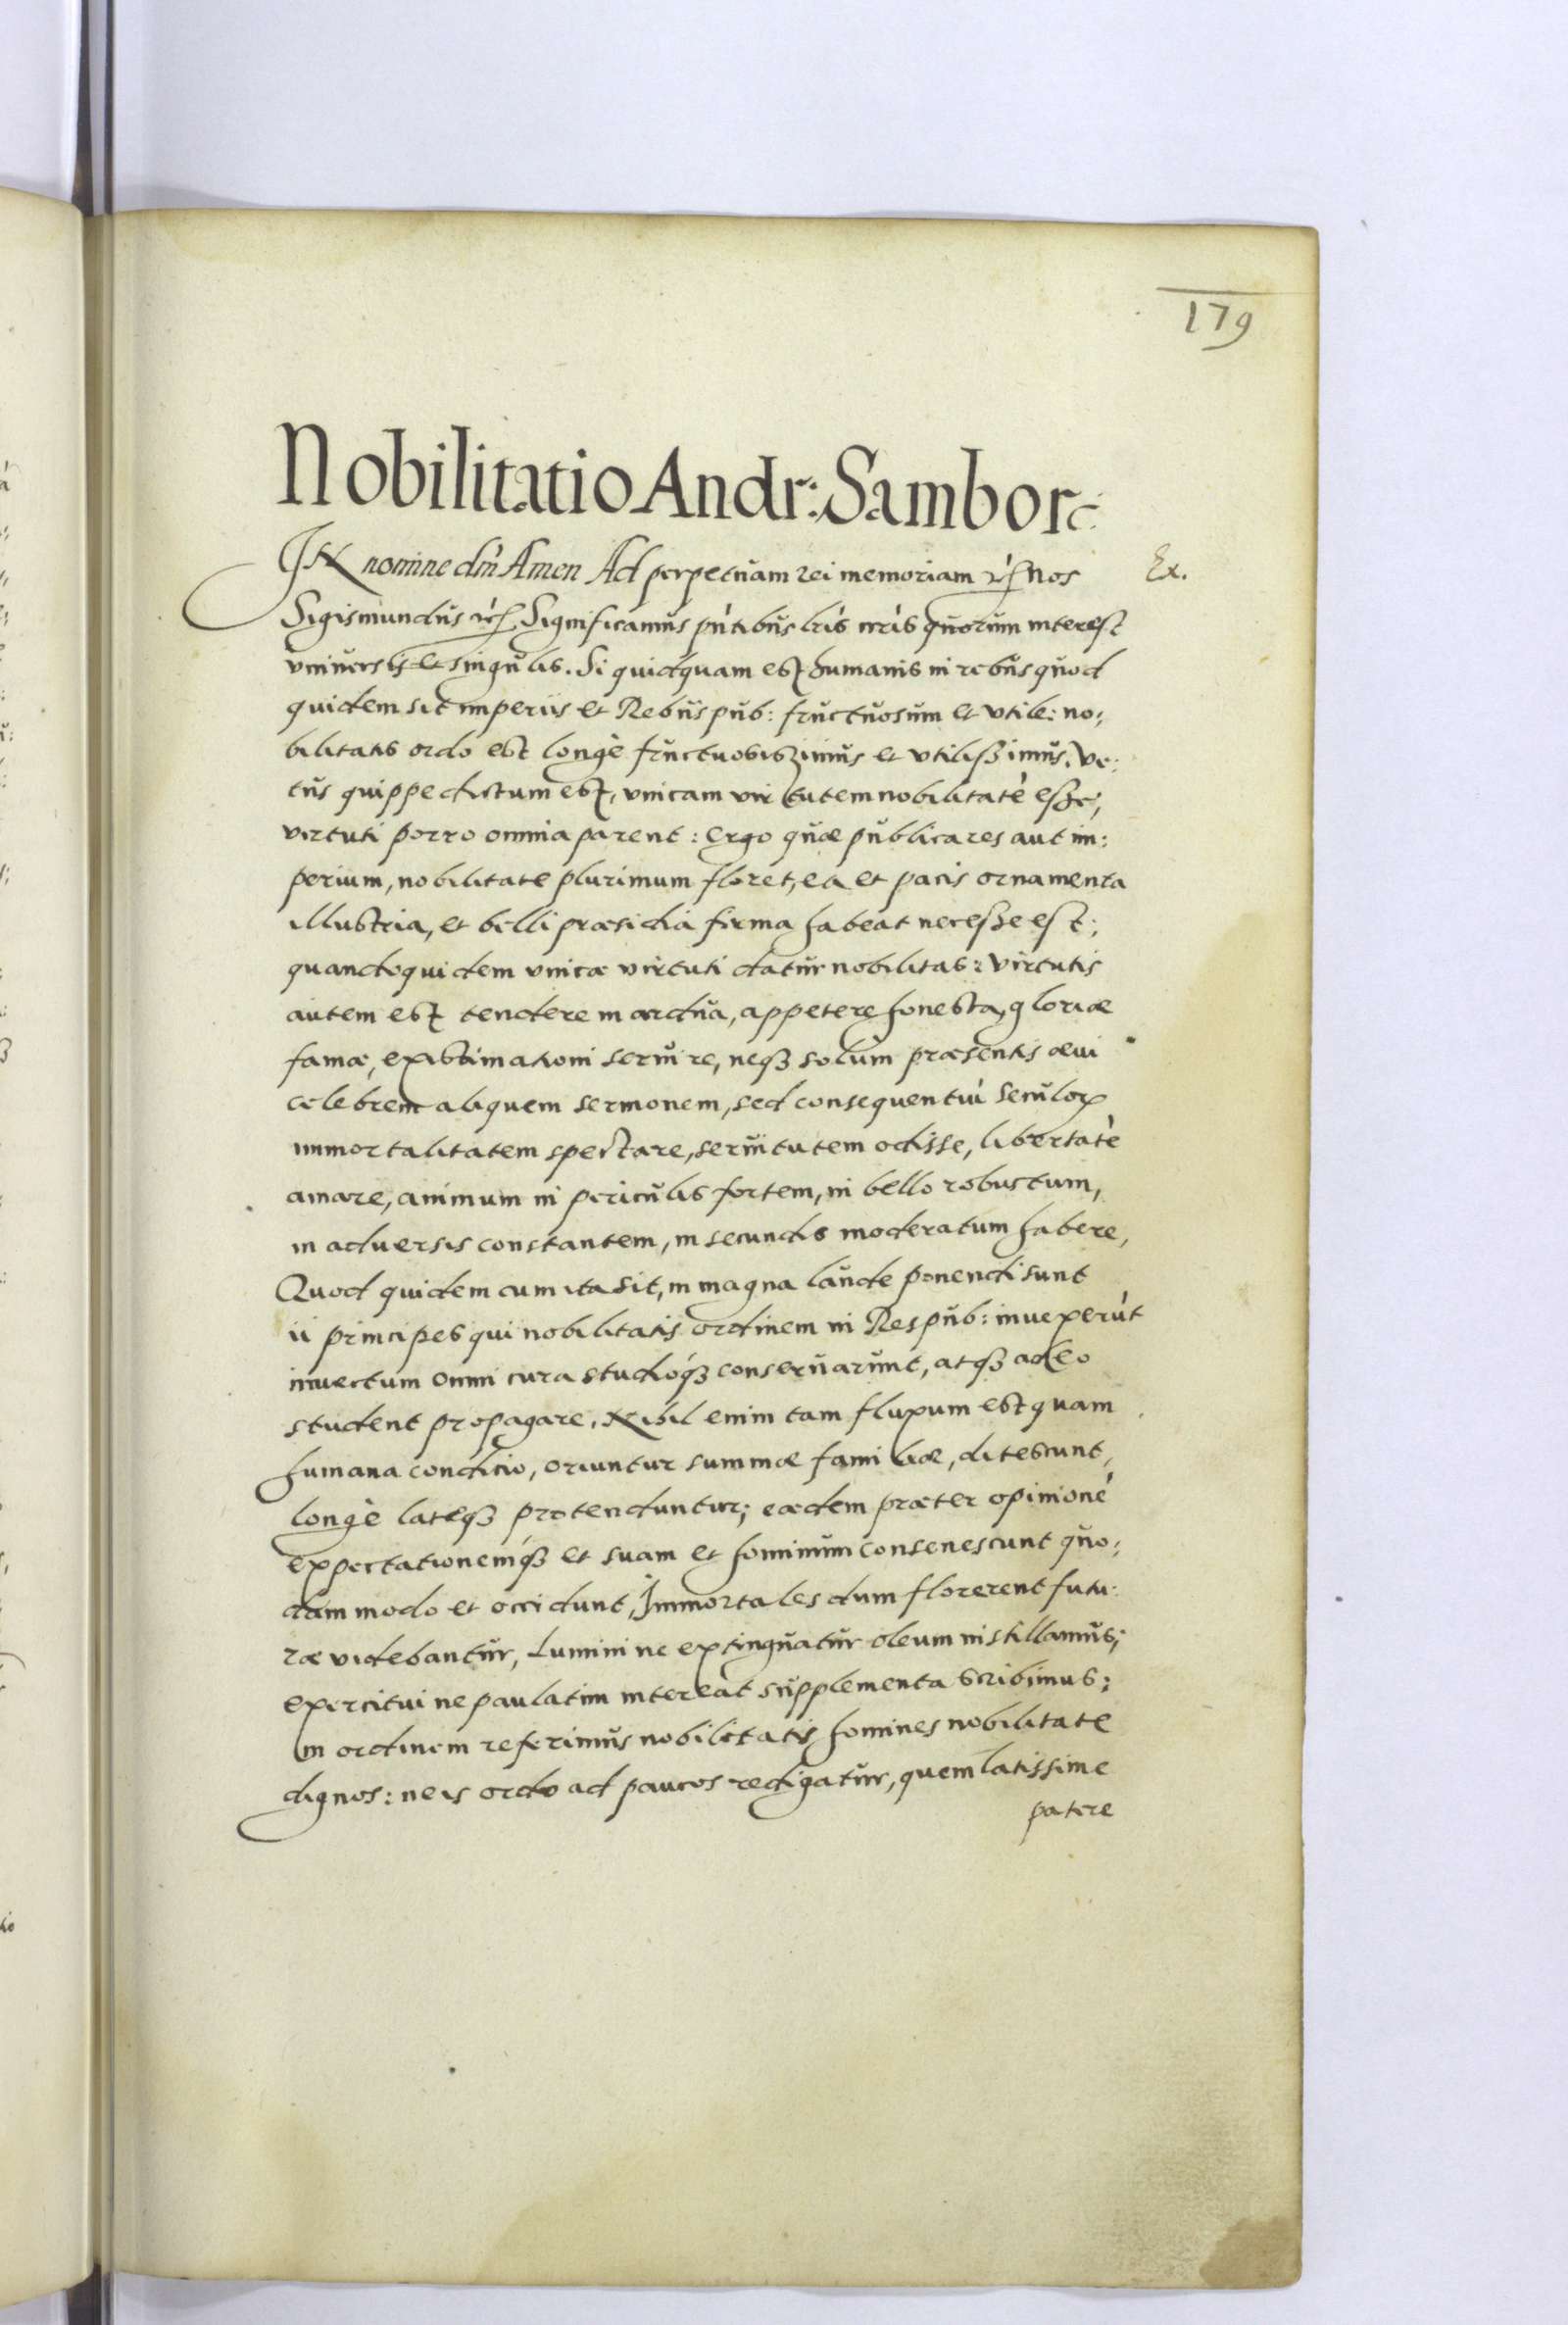 179
Nobilitatio Andr: Sambor:
IN nomine dni Amen Ad perpetuam rei memoriam etc Nos
Ex.
Sigismundus etc Significamus pntibus lris nris quorum interest
vniuersis et singulis. Si quidquam est humanis in rebus quod
quidem sit imperiis et Rebus pub: fructuosum et vtile: no:
bilitatis ordo est longè fructuosissimus et vtilissimus. Ve:
tus quippe dictum est, vnicam virtutem nobilitatē esse;
virtuti porro omnia parent: ergo quæ publica res aut im:
perium, nobilitate plurimum floret, ea et pacis ornamenta
illustria, et belli præsidia firma habeat necesse est;
quandoquidem vnicæ virtuti datur nobilitas: virtutis
autem est tendere in ardua, appetere honesta, gloriæ
famæ, existimationi seruire, neq3 solum præsentis æui
celebrem aliquem sermonem, sed consequentiū seculorꝝ
immortalitatem spectare, seruitutem odisse, libertatē
amare, animum in periculis fortem, in bello robustum,
in adversis constantem, in secundis moderatum habere,
Quod quidem cum ita sit, in magna laude ponendi sunt
ii principes qui nobilitatis ordinem in Respub: inuexerūt
inuectum omni cura studióq3 conseruarunt, atq3 adeo
student propagare. Nihil enim tam fluxum est quam
humana conditio, oriuntur summæ familiæ, ditescunt,
longè lateq3 protenduntur; eædem præter opinionē
expectationemq3 et suam et hominum consenescunt quo:
dam modo et occidunt, Immortales dum florerent futu:
ræ videbantur, Lumini ne extinguatur oleum instillamus;
exercitui ne paulatim intereat supplementa scribimus;
in ordinem referimus nobilitatis homines nobilitate
dignos: ne is ordo ad paucos redigatur, quem latissime
patere